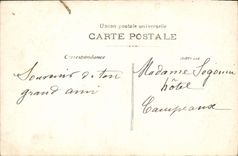 Union postale universelle
CARTE POSTALE
Correspondance
Souvenir de ton
grand ami
Madame
hôtel
Campeaux